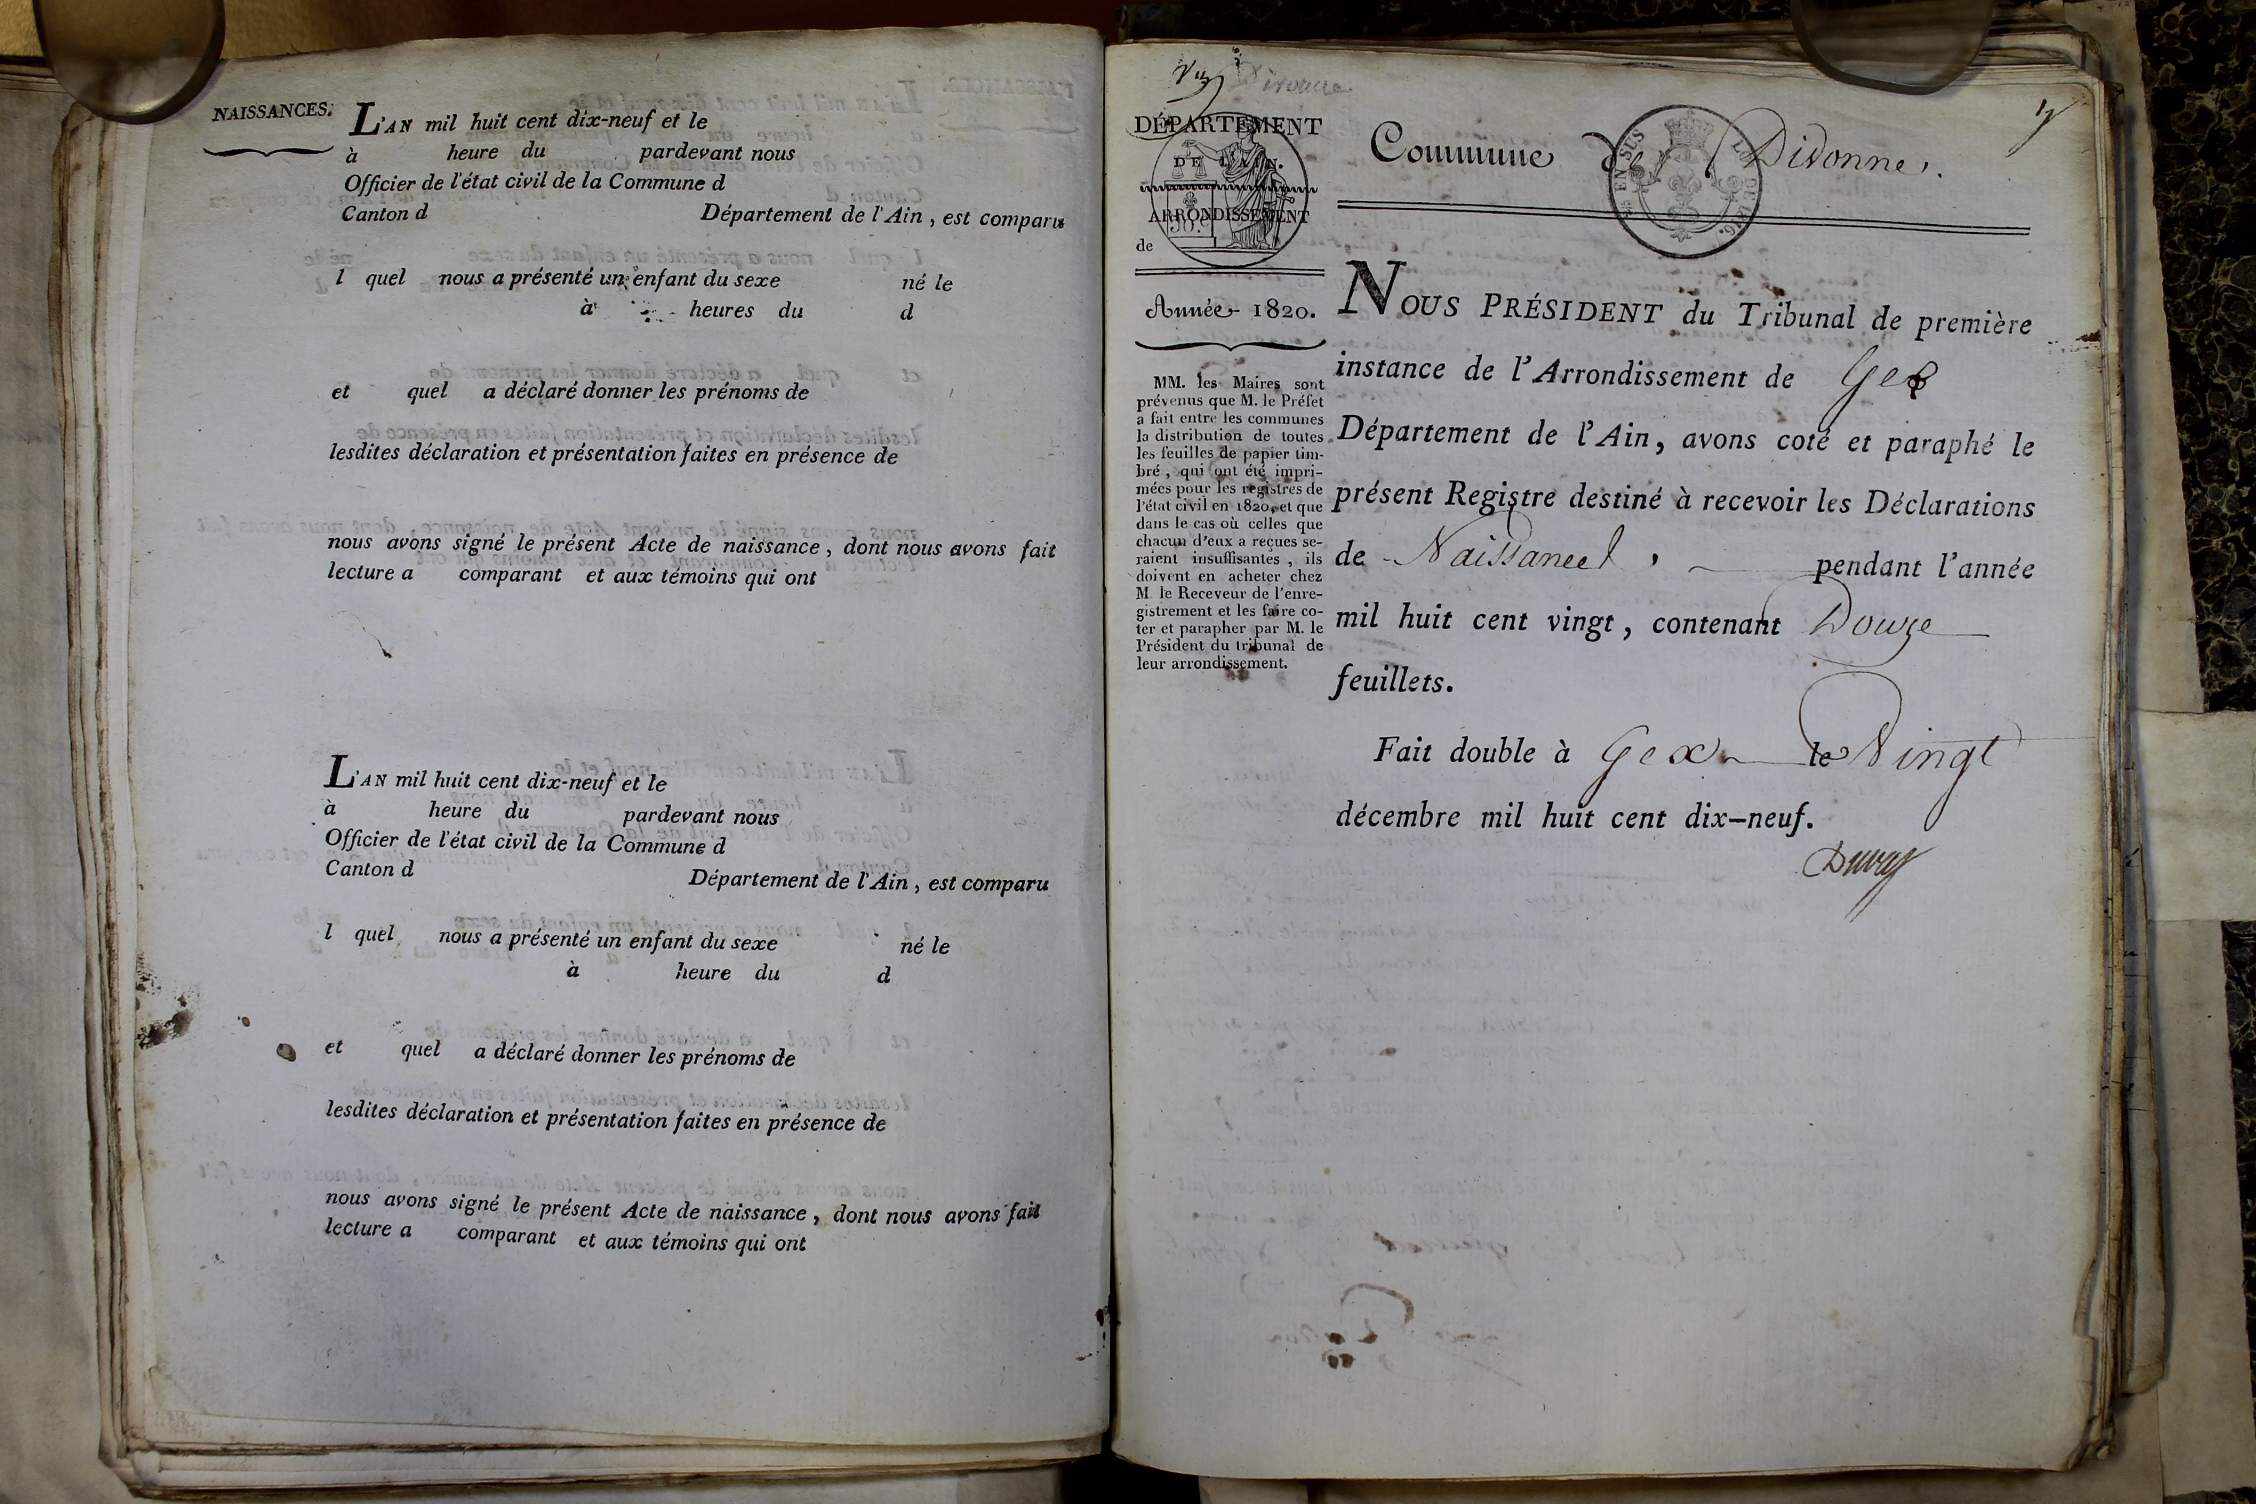 NAISSANCES.
L'AN mil huit cent dix-neuf et le
à heure du pardevant nous
Officier de l'état civil de la Commune d
Canton d Département de l'Ain, est comparu
l quel nous a présenté un enfant du sexe né le
à heures du d
et quel a déclaré donner les prénoms de
lesdites déclaration et présentation faites en présence de
nous avons signé le présent Acte de naissance, dont nous avons fait
lecture a comparant et aux témoins qui ont
L'AN mil huit cent dix-neuf et le
à heure du pardevant nous
Officier de l'état civil de la Commune d
Canton d Département de l'Ain, est comparu
l quel nous a présenté un enfant du sexe né le
à heure du d
et quel a déclaré donner les prénoms de
lesdites déclaration et présentation faites en présence de
nous avons signé le présent Acte de naissance, dont nous avons fait
lecture a comparant et aux témoins qui ont
Divonne
DÉPARTEMENT
DE L'AIN.
ARRONDISSEMENT
de
Année 1820.
MM. les Maires sont
prévenus que M. le Préfet
a fait entre les communes
la distribution de toutes
les feuilles de papier tim-
bré, qui ont été impri-
mées pour les registres de
l'état civil en 1820, et que
dans le cas où celles que
chacun d'eux a reçues se-
raient insuffisantes, ils
doivent en acheter chez
M. le Receveur de l'enre-
gistrement et les faire co-
ter et parapher par M. le
Président du tribunal de
leur arrondissement.
Commune de Divonne.
NOUS PRÉSIDENT du Tribunal de première
instance de l'Arrondissement de Gex
Département de l'Ain, avons coté et paraphé le
présent Registre destiné à recevoir les Déclarations
de Naissances, pendant l'année
mil huit cent vingt, contenant Douze
feuillets.
Fait double à Gex le Vingt
décembre mil huit cent dix-neuf.